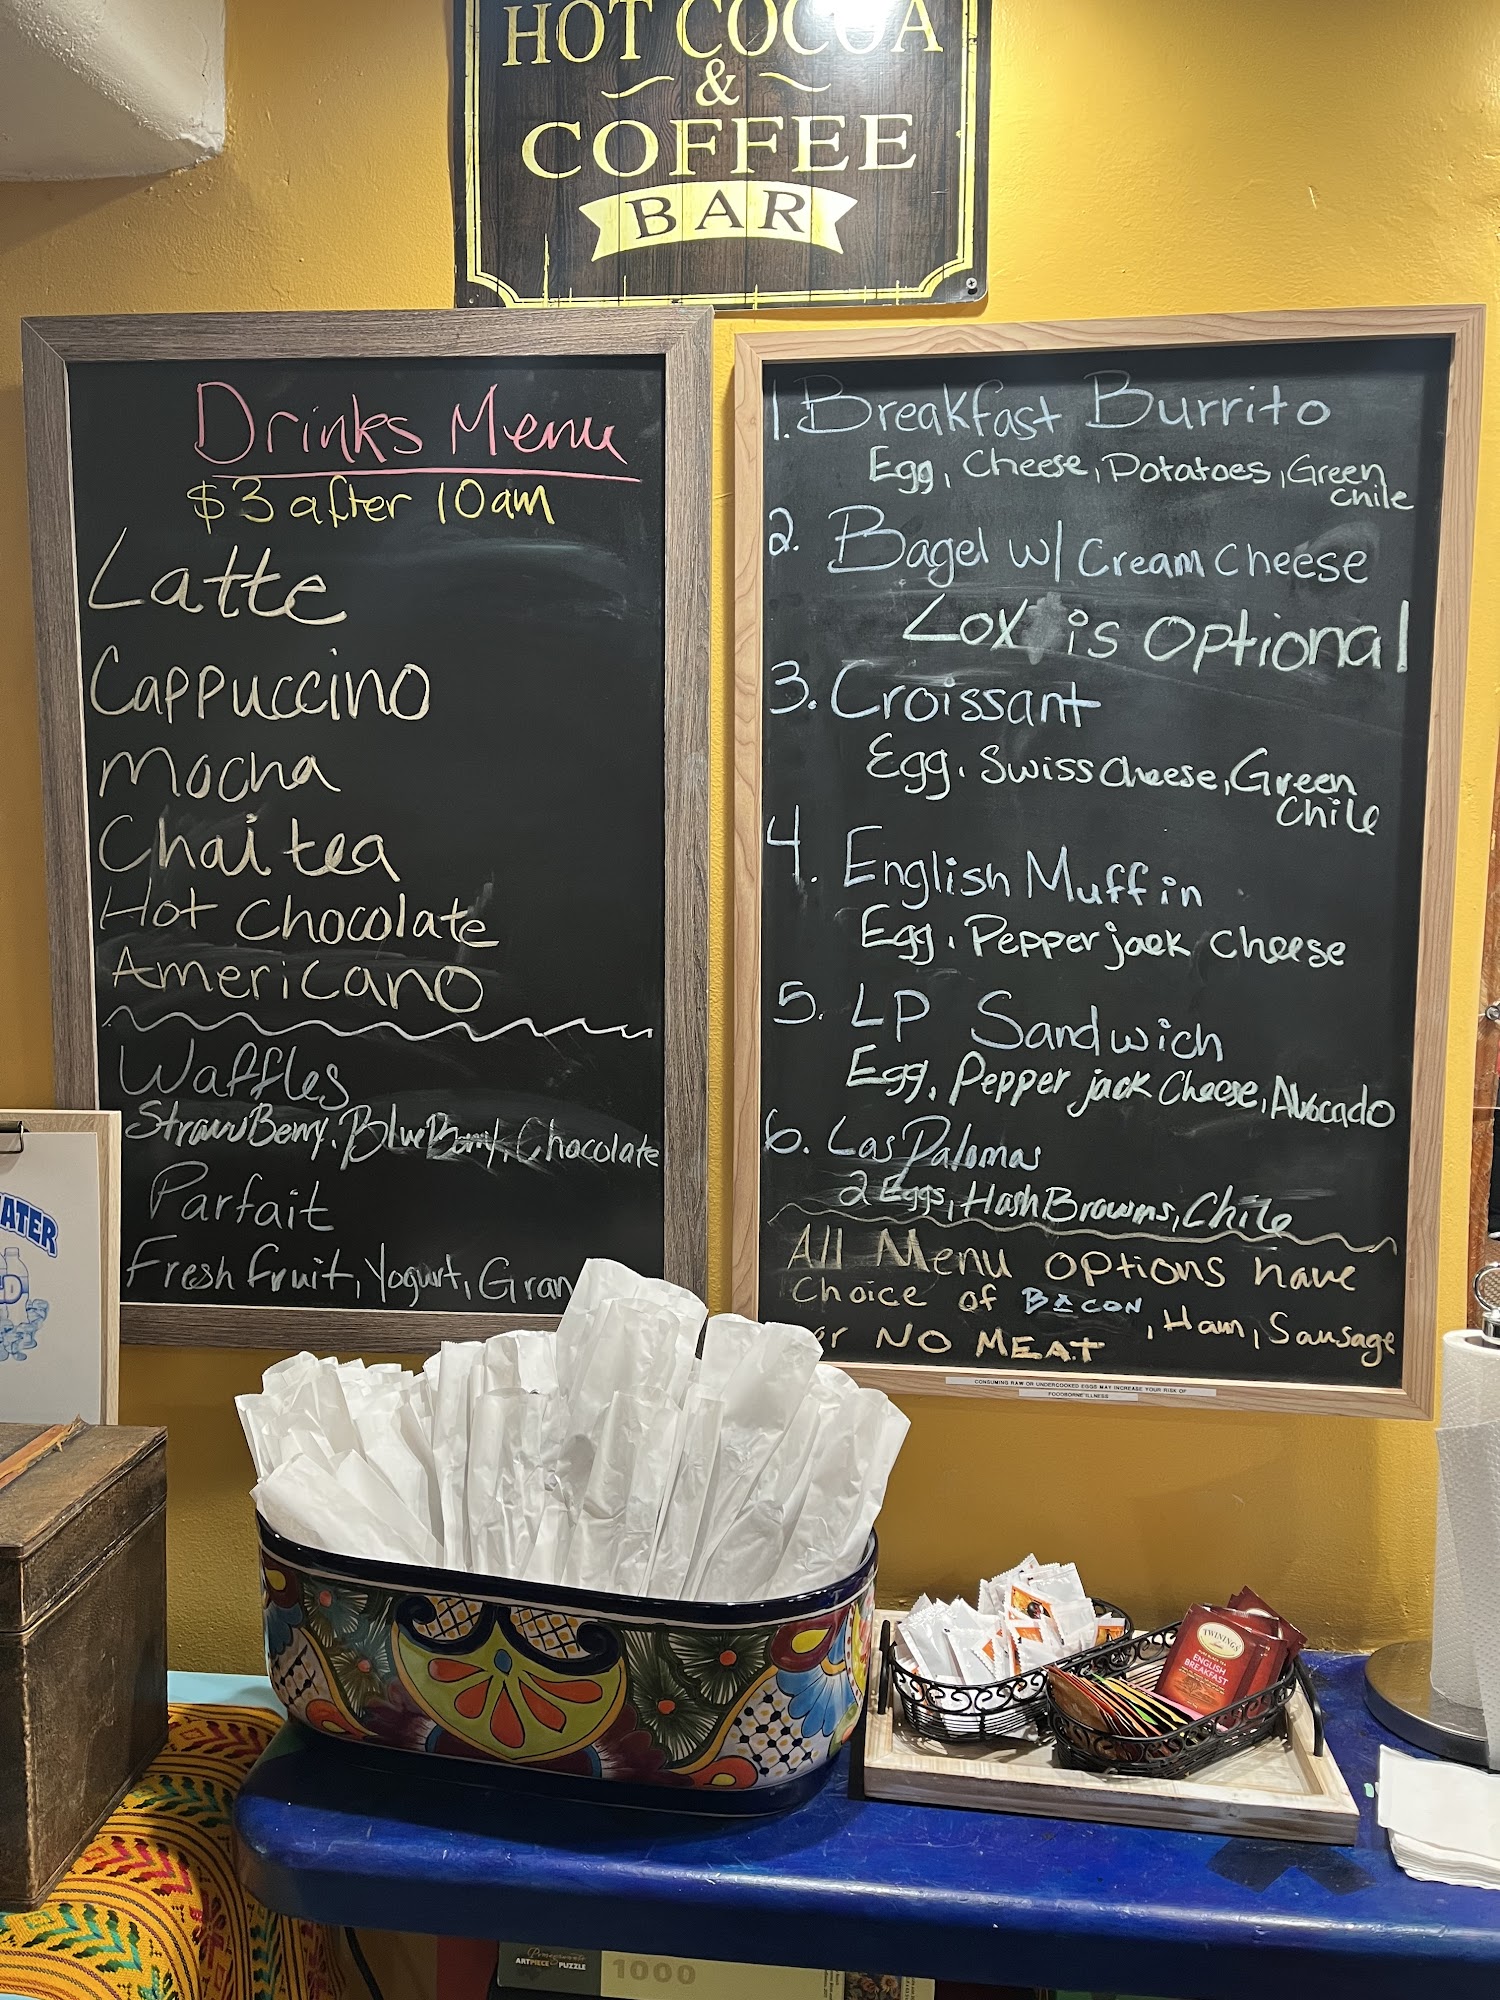 HOT COCOA
&
COFFEE
BAR
Drinks Menu
$3 after 10am
Latte
Cappuccino
Mocha
Chai tea
Hot Chocolate
Americano
Waffles
StrawBerry, BlueBerry, Chocolate
Parfait
Fresh fruit, Yogurt, Gran
1. Breakfast Burrito
Egg, Cheese, Potatoes, Green
Chile
2. Bagel w/ Cream Cheese
Lox is Optional
3. Croissant
Egg, Swiss Cheese, Green
Chile
4. English Muffin
Egg, Pepper jack Cheese
5. LP Sandwich
Egg, Pepper jack Cheese, Avocado
6. Las Palomas
2 Eggs, Hash Browns, Chile
All Menu options have
Choice of BACON, Ham, Sausage
or NO MEAT
CONSUMING RAW OR UNDERCOOKED EGGS MAY INCREASE YOUR RISK OF
FOODBORNE ILLNESS
ATER
TWININGS
ENGLISH
BREAKFAST
Pomegranate
ARTPIECE PUZZLE
1000